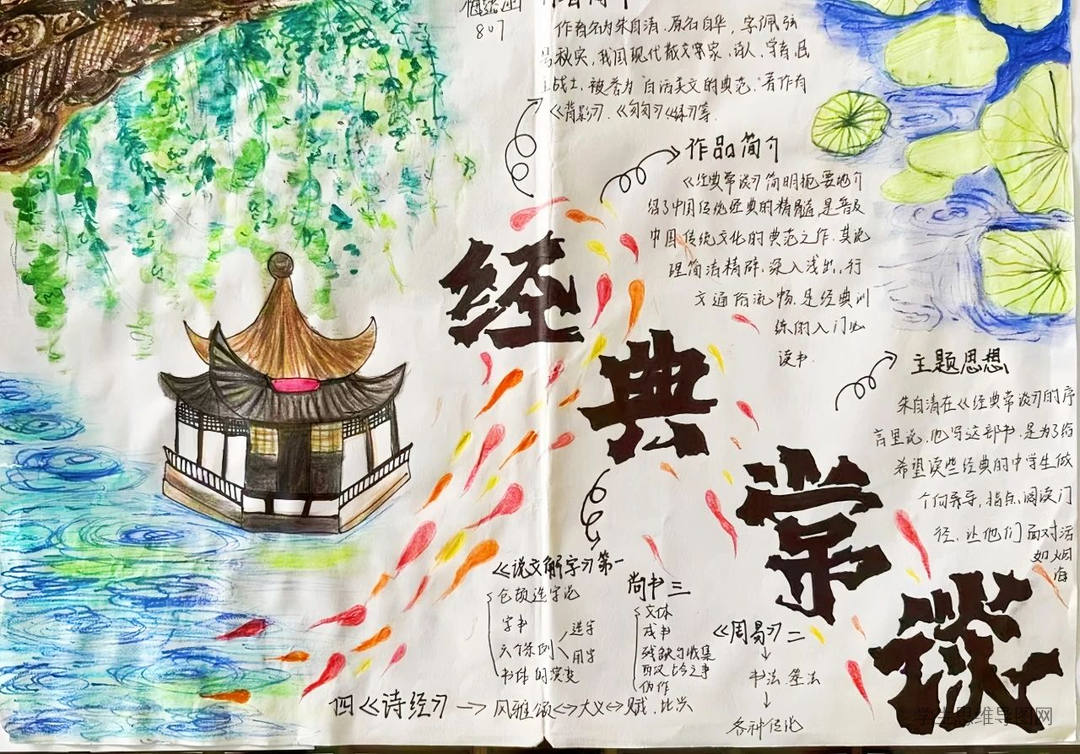 807
作者名为朱自清,原名自华,字佩弦
号秋实,我国现代散文家、诗人、学者、民
主战士,被誉为"白话美文的典范"著作有
《背影》、《匆匆》《绿》等.
作品简介
《经典常谈》简明扼要地介
绍了中国传统经典的精髓是普及
中国传统文化的典范之作.其说
理简洁精辟,深入浅出,行
文通俗流畅.是经典训
练的入门必
读书.
主题思想
朱自清在《经典常谈》的序
言里说,他写这部书,是为了给
希望读些经典的中学生做
个向导,指点阅读门
径,让他们面对浩
如烟
海
经
典
常
谈
《说文解字》第一
仓颉造字说
字书
六书条例
造字
用字
书体的演变
尚书三
文体
成书
残缺与收集
伪作
《周易》二
书法 筮法
各种传化
四《诗经》→风雅颂<->大义<->赋、比兴
学生思维导图网